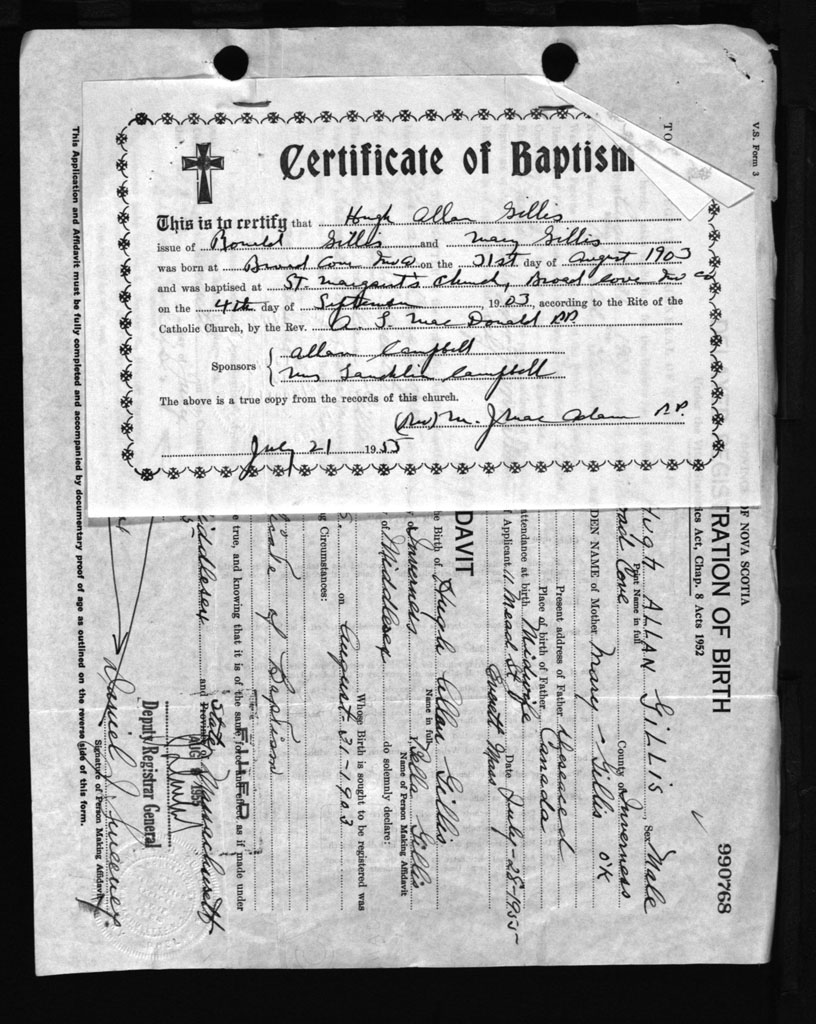 Certificate of Baptism
This is to certify that Hugh Allan Gillis
issue of Ronald Gillis and Mary Gillis
was born at Broad Cove Inv Co on the 31st day of August 1903
and was baptised at St. Margaret's Church, Broad Cove Inv Co
on the 4th day of September 1903, according to the Rite of the
Catholic Church, by the Rev. A. L. Mac Donald P.P.
Sponsors
Allan Campbell
Mrs Lauchlin Campbell
The above is a true copy from the records of this church.
(Rev) M. J Mac Adam P.P.
July 21 1955
V.S. Form 3
TO
990768
OF NOVA SCOTIA
TRATION OF BIRTH
ics Act, Chap. 8 Acts 1952
Hugh ALLAN GILLIS, Sex Male
Print Name in full
oad Cove County of Inverness
DEN NAME of Mother Mary - Gillis OK
Present address of Father Deceased
Place of birth of Father Canada
attendance at birth Midwife
f Applicant 11 Mead St Date July-28-1955
Everett Mass
DAVIT
he Birth of Hugh Allan Gillis
Name in full
Inverness I, Bella Gillis
Name of Person Making Affidavit
y of Middlesex do solemnly declare:
Whose Birth is sought to be registered was
on August-31-1903
ng Circumstances:
icate of Baptism
e true, and knowing that it is of the same force and effect as if made under
FILED
iddlesex and Province of State Massachusetts
AUG 1955
Deputy Registrar General
Daniel J. Sweeney
Signature of Person Making Affidavit
This Application and Affidavit must be fully completed and accompanied by documentary proof of age as outlined on the reverse side of this form.